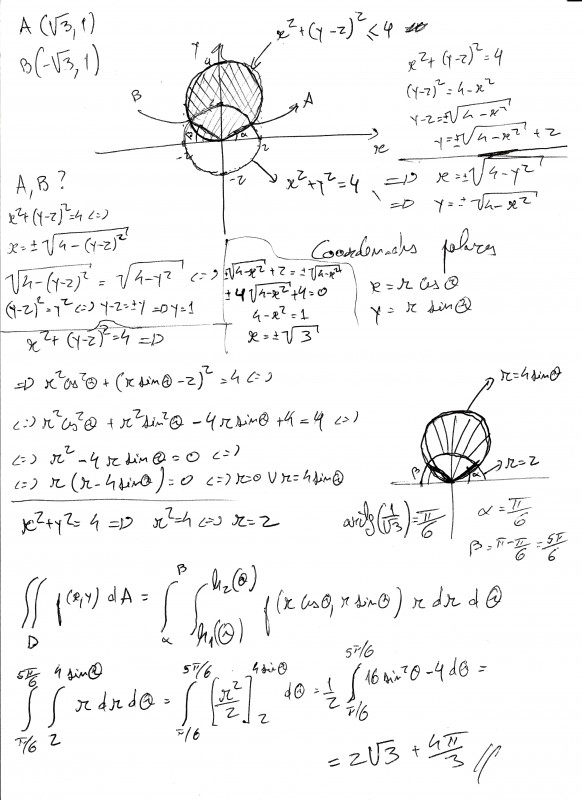 A(√3, 1)
B(-√3, 1)
y
4
x²+(y-2)² ≤ 4
B
A
2
α
-2
2
x
-2
x²+y²=4
x²+(y-2)²=4
(y-2)²=4-x²
y-2=±√(4-x²)
y=±√(4-x²)+2
=D x=±√(4-y²)
=D y=±√(4-x²)
A, B ?
x²+(y-2)²=4 <=>
x=±√(4-(y-2)²)
√(4-(y-2)²) = √(4-y²) <=>
(y-2)²=y² <=> y-2=±y =D y=1
±√(4-x²)+2=±√(4-x²)
±4√(4-x²)+4=0
4-x²=1
x=±√3
Coordenadas polares
x=r cosθ
y=r sinθ
x²+(y-2)²=4 =D
=D r²cos²θ+(r sinθ-2)²=4 <=>
<=> r²cos²θ+r²sin²θ-4r sinθ+4=4 <=>
<=> r²-4r sinθ=0 <=>
<=> r(r-4sinθ)=0 <=> r=0 ∨ r=4sinθ
x²+y²=4 =D r²=4 <=> r=2
r=4sinθ
β
α
r=2
arctg(1/√3)=π/6
α=π/6
β=π-π/6=5π/6
∬_D f(x,y) dA = ∫_α^β ∫_{h₁(θ)}^{h₂(θ)} f(r cosθ, r sinθ) r dr dθ
∫_{π/6}^{5π/6} ∫_2^{4sinθ} r dr dθ = ∫_{π/6}^{5π/6} [r²/2]_2^{4sinθ} dθ = 1/2 ∫_{π/6}^{5π/6} 16sin²θ-4 dθ =
= 2√3 + 4π/3 //